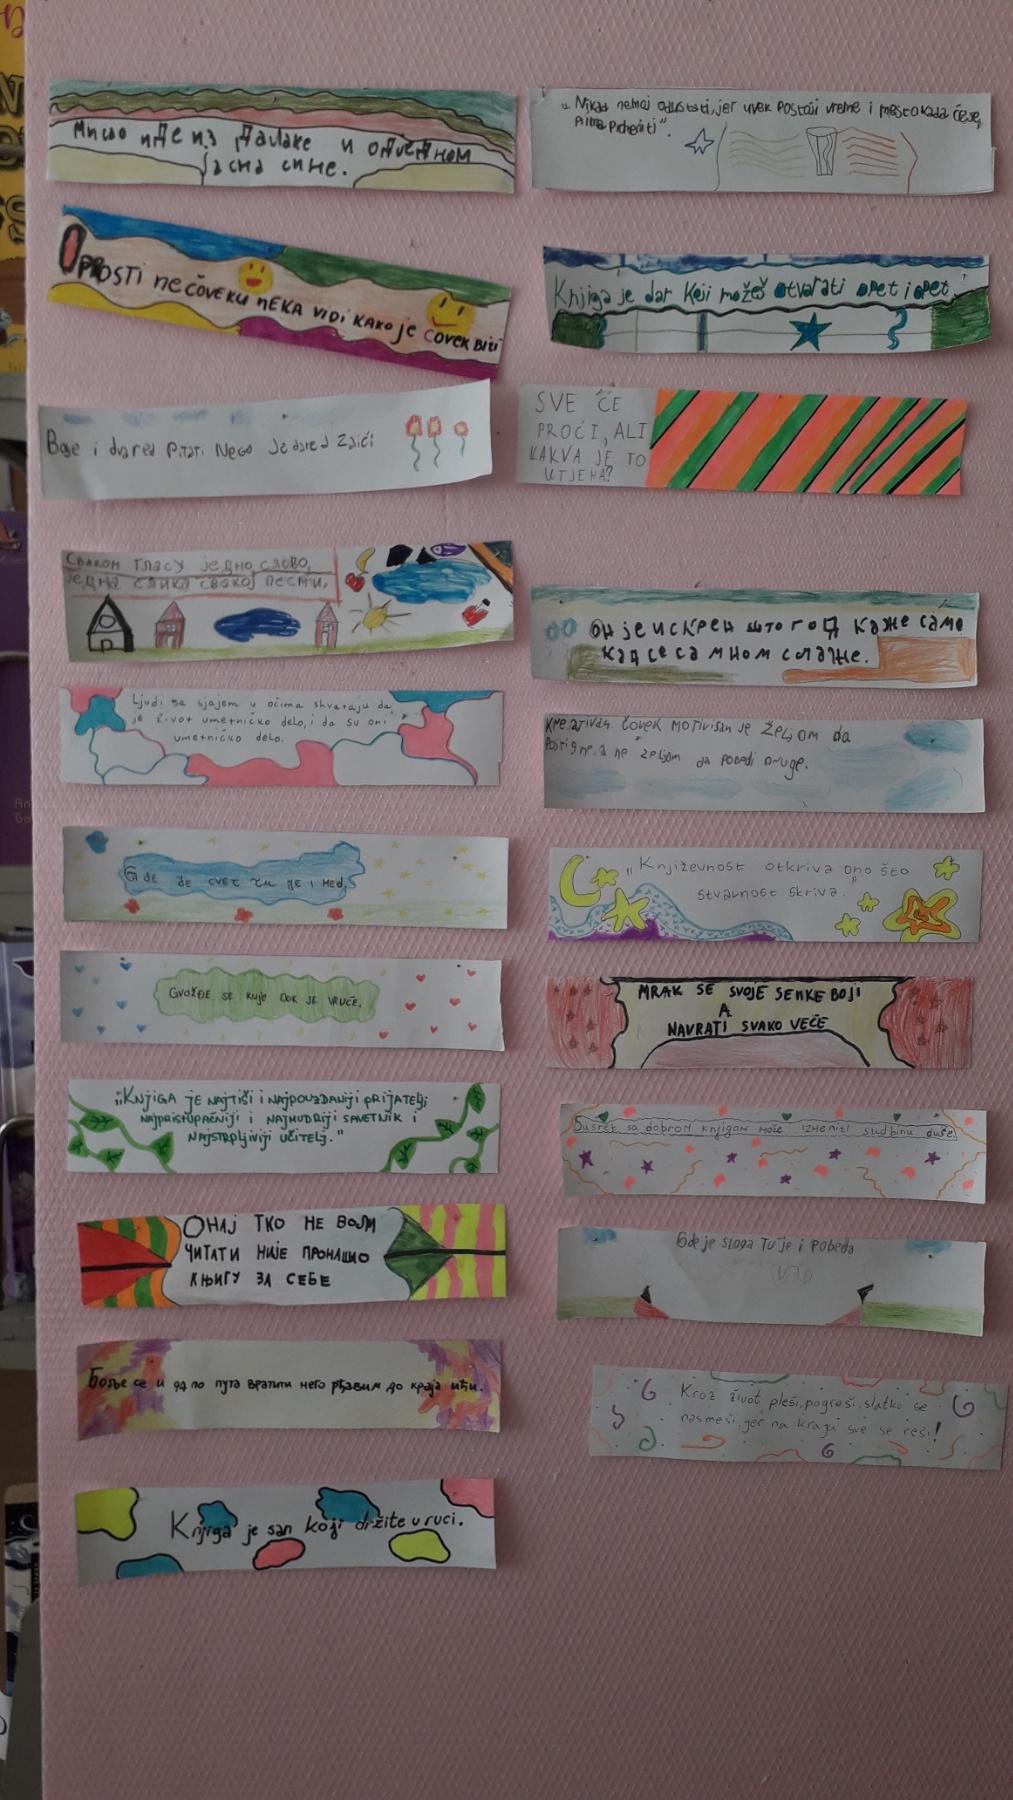 Мисао иде из далаке и одједном
јасна сине.
OPROSTI NEČOVEKU NEKA VIDI KAKO JE ČOVEK BITI
Bolje i dvared Pitati Nego Jedared Zaići
Сваком гласу једно слово,
једна слика свакој песми,
Ljudi sa sjajem u očima shvataju da
je život umetničko delo, i da su oni
umetničko delo.
Gde je cvet tu je i med.
GVOŽĐE SE KUJE DOK JE VRUĆE.
„KNJIGA JE NAJTIŠI I NAJPOUZDANIJI PRIJATELJ;
NAJPRISTUPAČNIJI I NAJMUDRIJI SAVETNIK I
NAJSTRPLJIVIJI UČITELJ."
ОНАЈ ТКО НЕ ВОЛИ
ЧИТАТИ НИЈЕ ПРОНАШАО
КЊИГУ ЗА СЕБЕ
Боље се и од по пута вратити него рђавим до краја ићи.
Knjiga je san koji držite u ruci.
„Nikad nemoj odustati, jer uvek postoji vreme i mesto kada ćeš
plima".
Knjiga je dar koji možeš otvarati opet i opet.
SVE ĆE
PROĆI, ALI
KAKVA JE TO
UTJEHA?
Он је искрен што год каже само
кад се са мном слаже.
Kreativan čovek motivisan je željom da
postigne, a ne željom da pobedi druge.
„Književnost otkriva ono što
stvarnost skriva."
MRAK SE SVOJE SENKE BOJI
A
NAVRATI SVAKO VEČE
Susret sa dobrom knjigom može izmeniti sudbinu duše
Gde je sloga tu je i pobeda
Kroz život pleši, pogreši, slatko se
nasmeši, jer na kraju sve se reši!